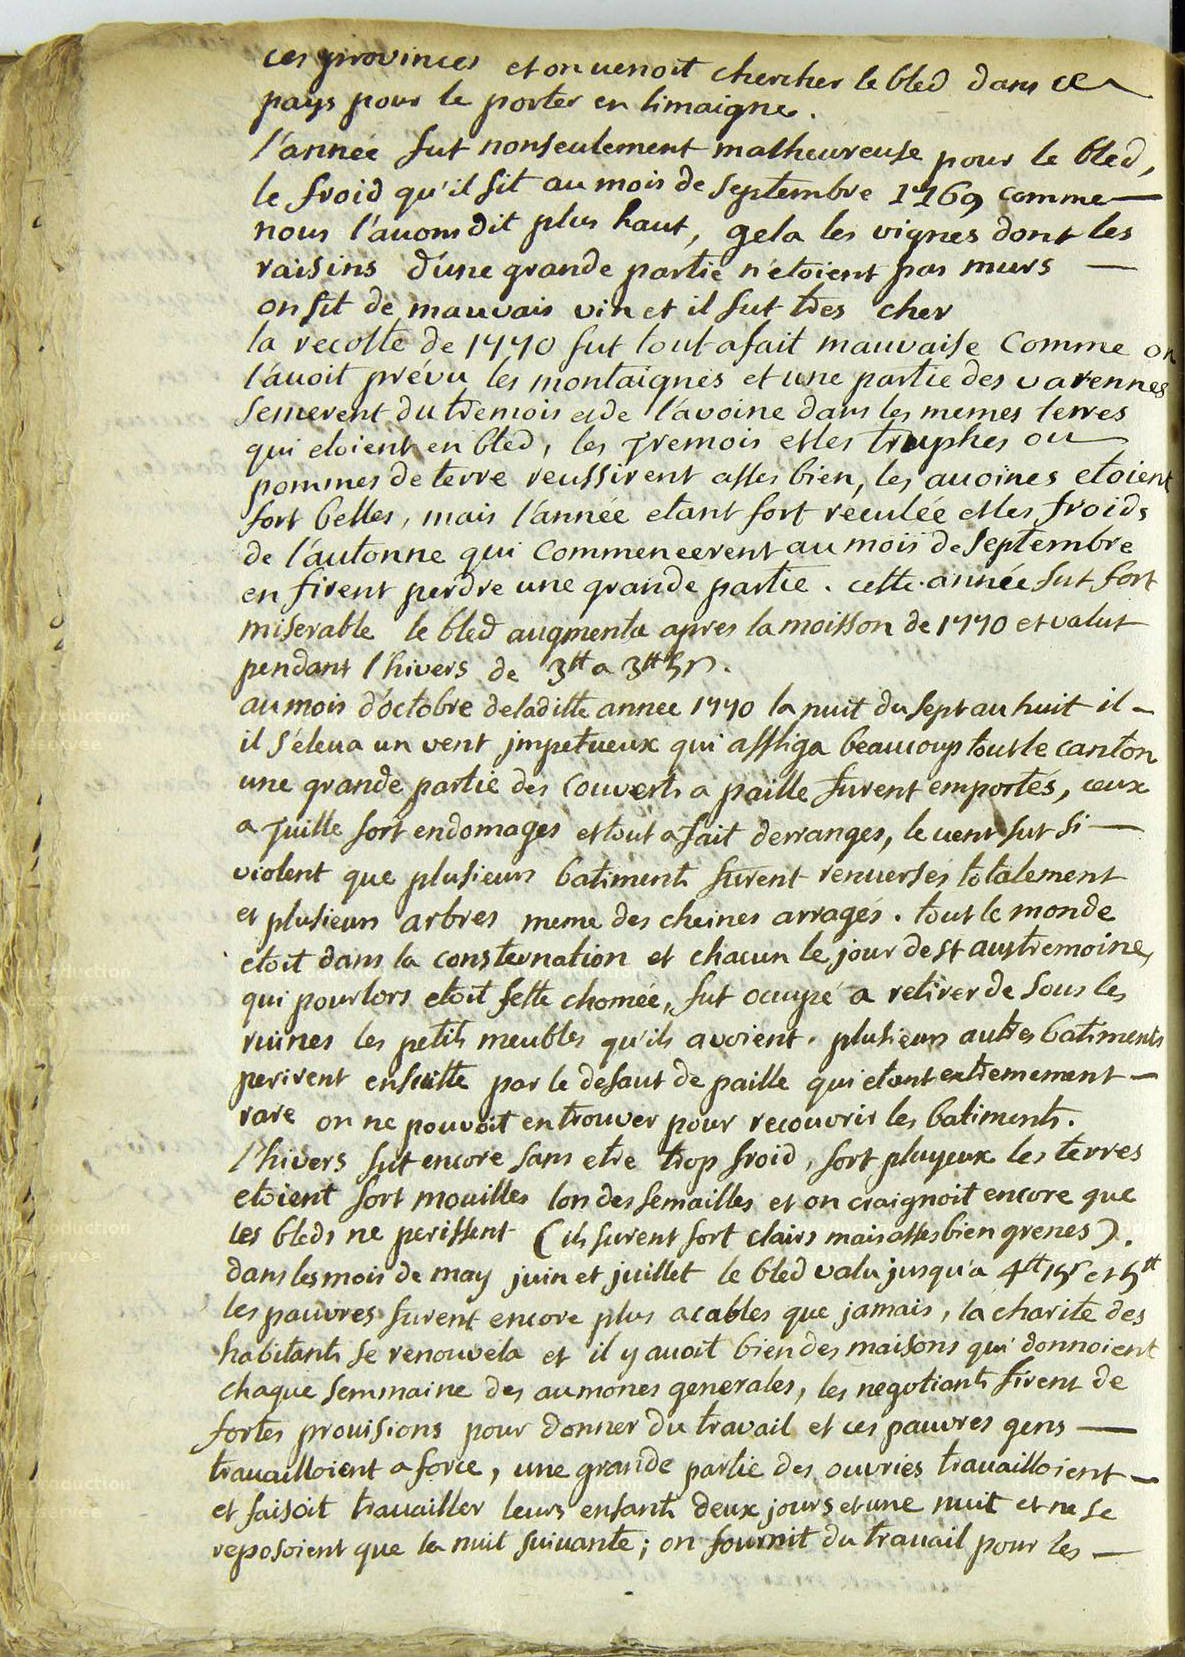 ces provinces et on venoit chercher le bled dans ce
pays pour le porter en limaigne.
l'année fut nonseulement malheureuse pour le bled,
le froid qu'il fit au mois de septembre 1769 comme
nous l'avons dit plus haut, gela les vignes dont les
raisins d'une grande partie n'etoient pas murs
on fit de mauvais vin et il fut tres cher
la recolte de 1770 fut tout a fait mauvaise Comme on
l'avoit prévu les montaignes et une partie des varennes
semerent du tremois et de l'avoine dans les memes terres
qui etoient en bled, les tremois et les truphes ou
pommes de terre reussirent asses bien, les avoines etoient
fort belles, mais l'année etant fort reculée et les froids
de l'autonne qui Commencerent au mois de septembre
en firent perdre une grande partie. cette année fut fort
miserable le bled augmenta apres la moisson de 1770 et valut
pendant l'hivers de 3tt a 3tt 5s.
au mois d'octobre de laditte annee 1770 la nuit du sept au huit il
il s'éleva un vent impetueux qui affliga beaucoup tout le canton
une grande partie des Couverts a paille furent emportés, ceux
a tuille fort endomagés et tout a fait derrangés, le vent fut si
violent que plusieurs batiments furent renversés totalement
et plusieurs arbres meme des cheines arragés. tout le monde
etoit dans la consternation et chacun le jour de st austremoine,
qui pourlors etoit fette chomée, fut occupé a retirer de sous les
ruines les petits meubles qu'ils avoient. plusieurs autres batiments
perirent ensuitte par le defaut de paille qui etant extremement
rare on ne pouvoit en trouver pour recouvrir les batiments.
l'hivers fut encore sans etre trop froid, fort pluyeux les terres
etoient fort mouilles lors des semailles et on craignoit encore que
les bleds ne perissent (ils furent fort clairs mais asses bien grenes).
dans les mois de may juin et juillet le bled valu jusqu'a 4tt 15s et 5tt
les pauvres furent encore plus acablés que jamais, la charité des
habitants se renouvela et il y avoit bien des maisons qui donnoient
chaque semmaine des aumones generales, les negotiants firent de
fortes provisions pour donner du travail et ces pauvres gens
travailloient a force, une grande partie des ouvries travailloient
et faisoit travailler leurs enfants deux jours et une nuit et ne se
reposoient que la nuit suivante; on fournit du travail pour les